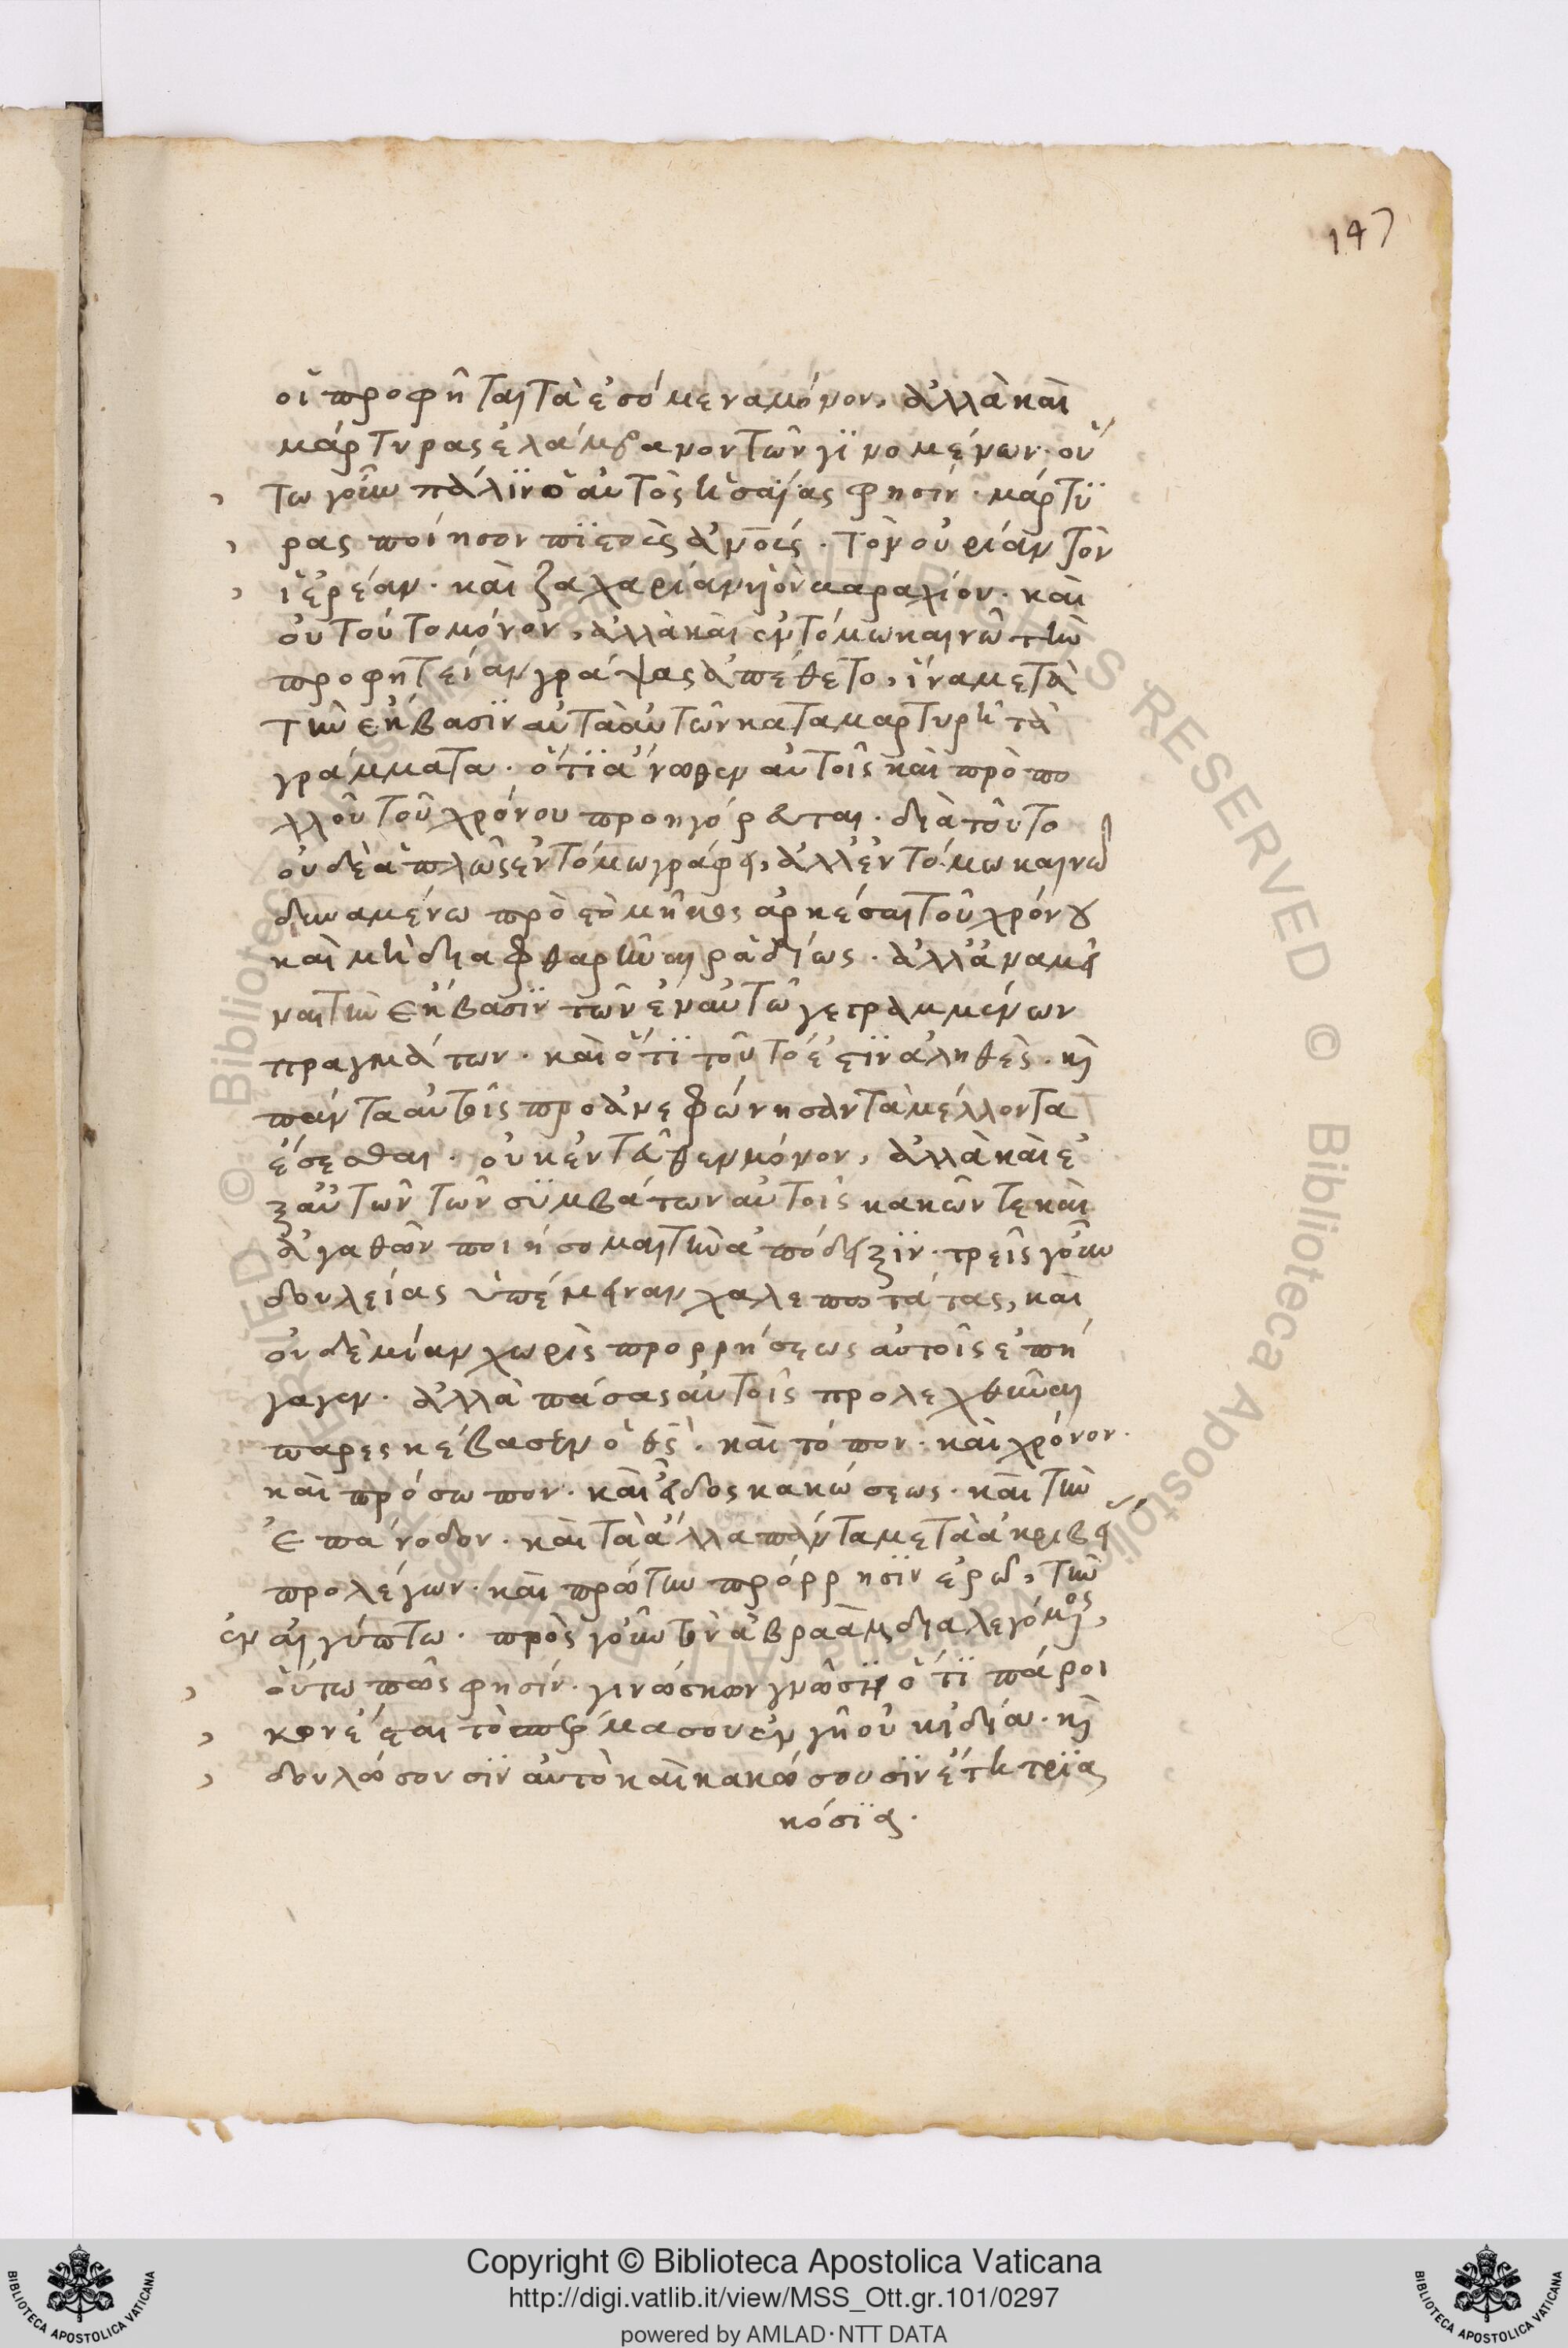 147
οἱ προφῆται τὰ ἐσόμενα μόνον, ἀλλὰ καὶ
μάρτυρας ἐλάμβανον τῶν γϊνομένων· οὕ
τω γοῦν πάλϊν ὁ αὐτὸς ἡσαΐας φησίν· μάρτϋ
ρας ποίησον πϊστοὺς ἀν̅ο̅υς· τὸν οὐρίαν τὸν
ἱερέαν· καὶ ζαχαρίαν ϋἱὸν βαραχίου· καὶ
οὐ τοῦτο μόνον, ἀλλὰ καὶ ἐν τόμω καινῶ τὴν
προφητείαν γράψας ἀπέθετο, ἵνα μετὰ
τὴν ἔκβασϊν αὐτὰ αὐτῶν καταμαρτυρῆ τὰ
γράμματα· ὅτϊ ἄνωθεν αὐτοῖς καὶ πρὸ πο
λλοῦ τοῦ χρόνου προηγόρευται· διὰ τοῦτο
οὐδὲ ἁπλῶς ἐν τόμω γράφει, ἀλλ' ἐν τόμω καινῶ
δυναμένω πρὸς τὸ μῆκος ἀρκέσαι τοῦ χρόνου
καὶ μὴ διαφθαρῆναι ῥαδίως· ἀλλ' ἀναμεῖ
ναι τὴν ἔκβασϊν τῶν ἐν αὐτῶ γεγραμμένων
πραγμάτων· καὶ ὅτϊ τοῦτό ἐστϊν ἀληθὲς· καὶ
πάντα αὐτοῖς προανεφώνησαν τὰ μέλλοντα
ἔσεσθαι· οὐκ ἐντεῦθεν μόνον, ἀλλὰ καὶ ἐ
ξ αὐτῶν τῶν σϋμβάντων αὐτοῖς κακῶν τε καὶ
ἀγαθῶν ποιήσομαι τὴν ἀπόδειξϊν· τρεῖς γοῦν
δουλείας ὑπέμειναν χαλεπωτάτας, καὶ
οὐδεμίαν χωρὶς προρρήσεως αὐτοῖς ἐπή
γαγεν· ἀλλὰ πάσας αὐτοῖς προλεχθῆναι
παρεσκεύασεν ὁ θ̅ς̅· καὶ τόπον· καὶ χρόνον·
καὶ πρόσωπον· καὶ εἶδος κακώσεως· καὶ τὴν
ἐπάνοδον· καὶ τὰ ἄλλα πάντα μετὰ ἀκριβεί
προλέγων· καὶ πρώτην πρόρρησϊν ἐρῶ, τὴν
ἐν αἰγύπτω· πρὸς γοῦν τὸν ἀβραὰμ διαλεγόμενος,
οὕτω πῶς φησίν· γινώσκων γνώσϊ ὅτϊ πάροι
κον ἔσται τὸ σπέρμα σου ἐν γῆ οὐκ ἰδία· καὶ
δουλώσουσϊν αὐτὸ καὶ κακώσουσϊν ἔτη τρϊα
κόσϊα·
Copyright © Biblioteca Apostolica Vaticana
http://digi.vatlib.it/view/MSS_Ott.gr.101/0297
powered by AMLAD·NTT DATA